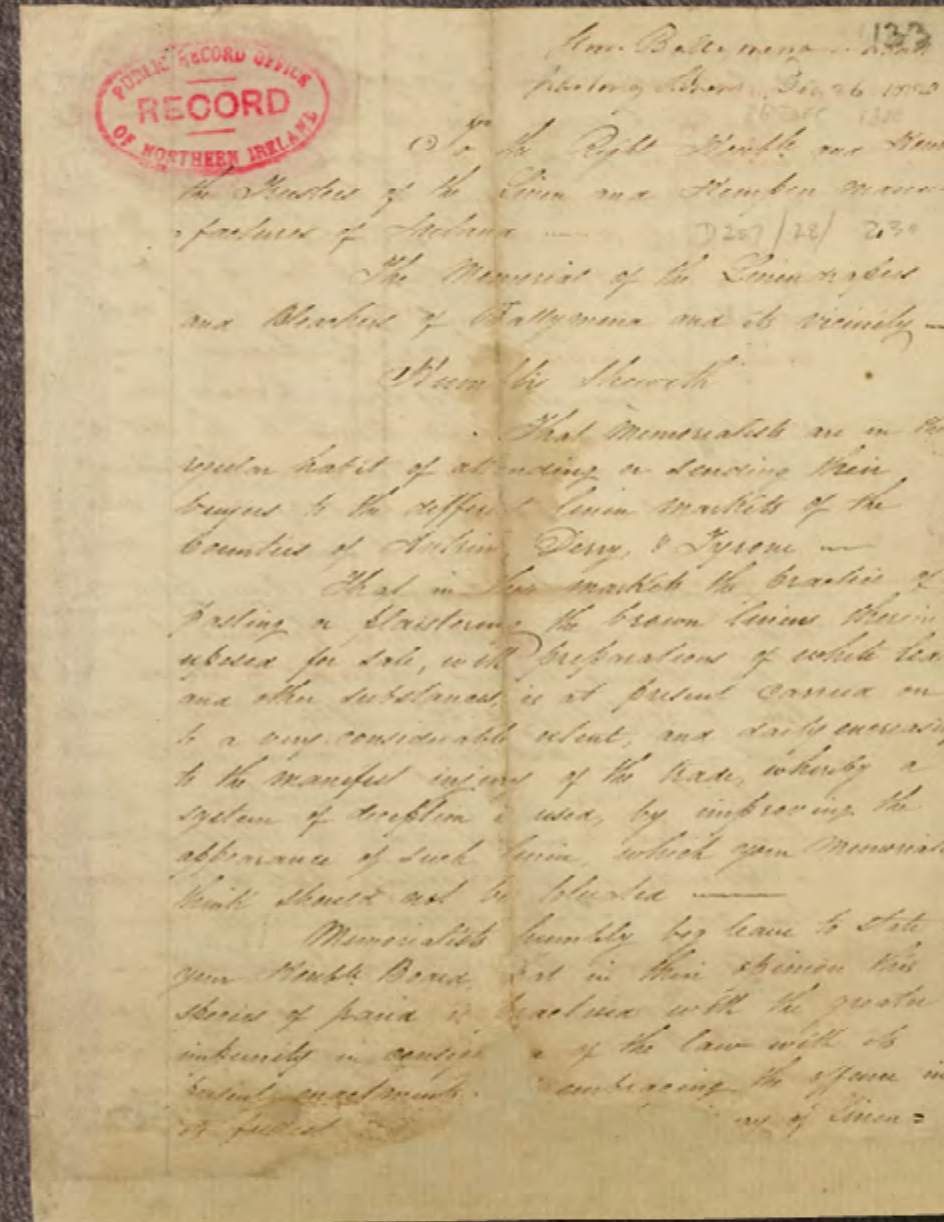 PUBLIC RECORD OFFICE
RECORD
OF NORTHERN IRELAND
133
Ballymena
Linens, Dec 26
26 Dec
To the Right Honble and Hon
the Trustees of the Linen and Hempen manu
factures of Ireland
D207/28/ 230
The Memorial of the Linendrapers
and Bleachers of Ballymena and its vicinity
Humbly Sheweth
That Memorialists are in the
regular habit of attending or sending their
buyers to the different linen markets of the
Counties of Antrim, Derry, & Tyrone
That in these markets the practice of
pasting or plaistering the brown linens therein
exposed for sale, with preparations of white
and other substances, is at present carried on
to a very considerable extent, and daily increasing
to the manifest injury of the trade, whereby a
system of deception is used, by improving the
appearance of such linen, which your Memorial
think should not be tolerated
Memorialists humbly beg leave to state
your Honble Board, that in their opinion this
species of fraud is practised with the greater
impunity in of the law with its
present enactments embracing the offence in
its fullest of linen